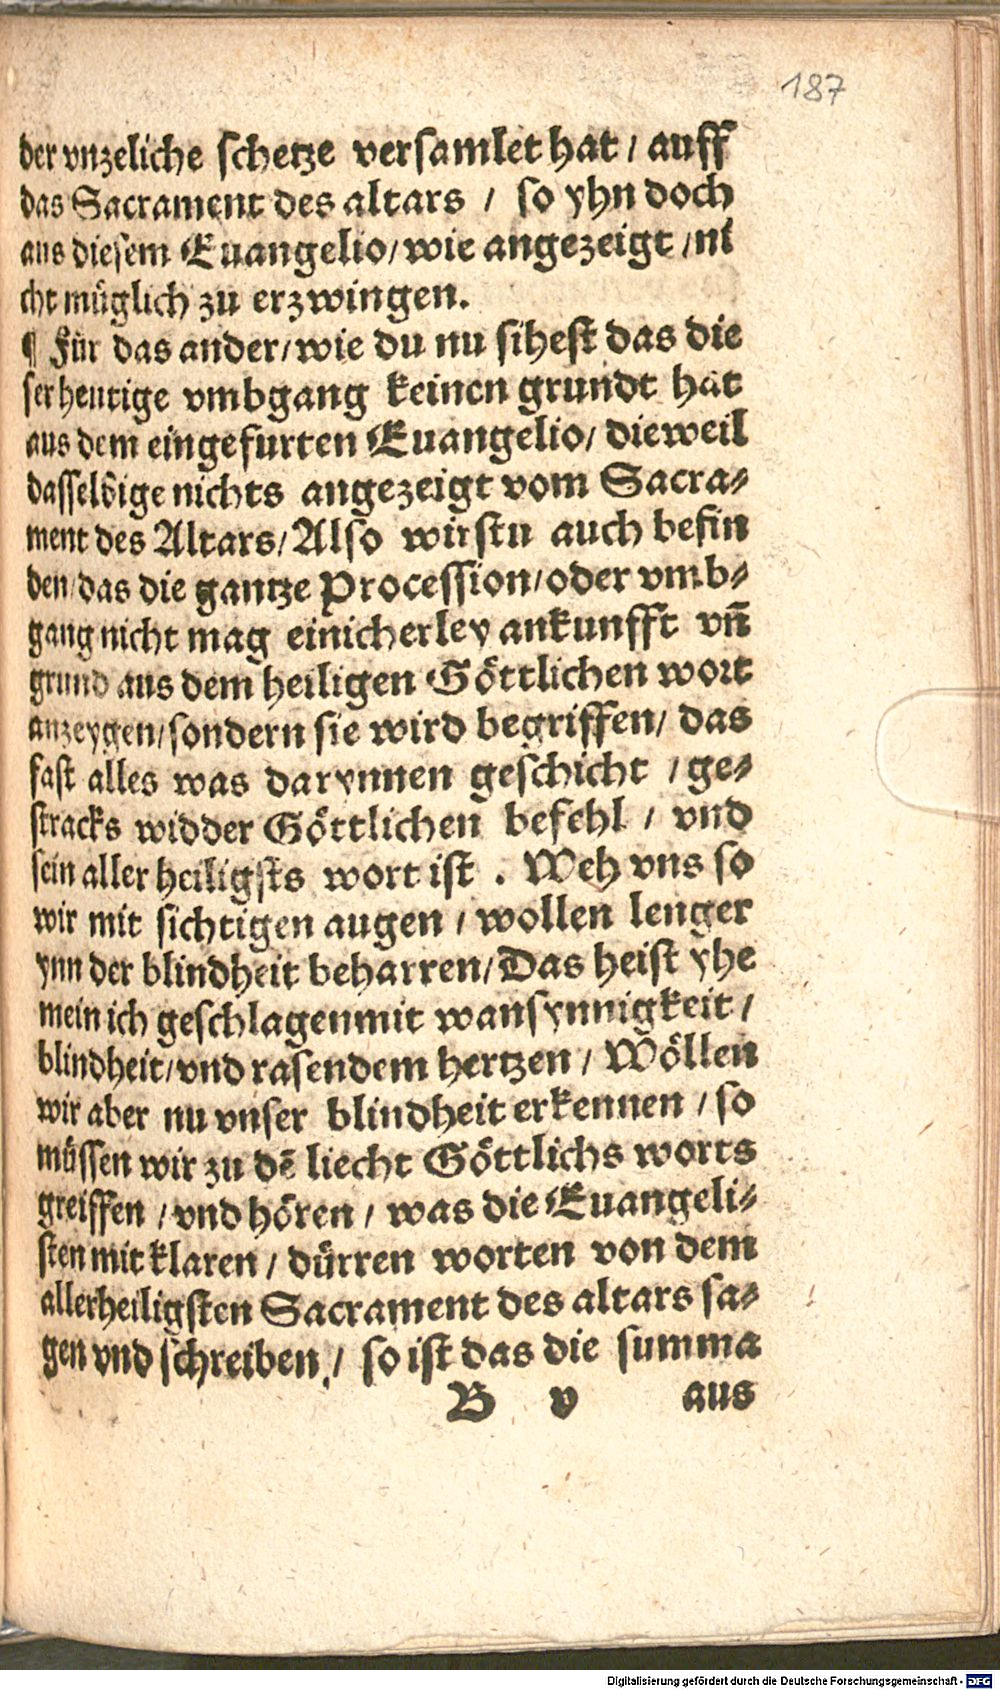 187
der vnzeliche schetze versamlet hat / auff
das Sacrament des altars / so yhn doch
aus diesem Euangelio / wie angezeigt / ni
cht müglich zu erzwingen.
¶ Für das ander / wie du nu sihest das die
ser heutige vmbgang keinen grundt hat
aus dem eingefurten Euangelio / dieweil
dasselbige nichts angezeigt vom Sacra-
ment des Altars / Also wirstu auch befin
den / das die gantze Procession / oder vmb-
gang nicht mag einicherley ankunfft vñ
grund aus dem heiligen Göttlichen wort
anzeygen / sondern sie wird begriffen / das
fast alles was darynnen geschicht / ge-
stracks widder Göttlichen befehl / vnd
sein aller heiligsts wort ist . Weh vns so
wir mit sichtigen augen / wollen lenger
ynn der blindheit beharren / Das heist yhe
mein ich geschlagenmit wansynnigkeit /
blindheit / vnd rasendem hertzen / Wöllen
wir aber nu vnser blindheit erkennen / so
müssen wir zu dē liecht Göttlichs worts
greiffen / vnd hören / was die Euangeli-
sten mit klaren / dürren worten von dem
allerheiligsten Sacrament des altars sa-
gen vnd schreiben / so ist das die summa
B v aus
Digitalisierung gefördert durch die Deutsche Forschungsgemeinschaft - DFG